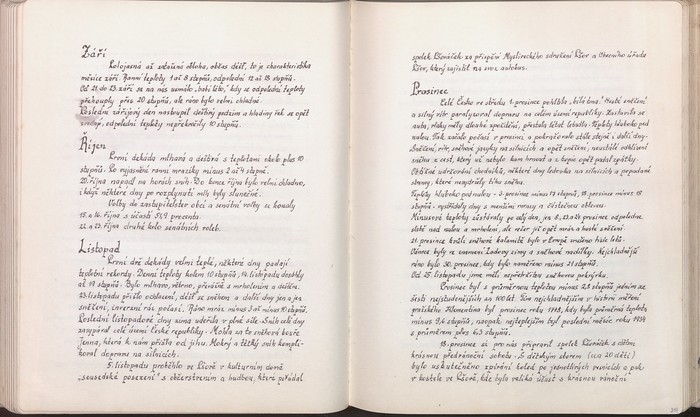 Září
Polojasná až zatažená obloha, občas déšť, to je charakteristika
měsíce září. Ranní teploty 1 až 8 stupňů, odpolední 12 až 18 stupňů.
Od 21. do 23. září se na nás usmálo „babí léto", kdy se odpolední teploty
přehouply přes 20 stupňů, ale ráno bylo velmi chladné.
Poslední zářijový den nastoupil deštivý podzim a hladiny řek se opět
zvedají, odpolední teploty nepřekročily 10 stupňů.
Říjen
První dekáda mlhavá a deštivá s teplotami okolo plus 10
stupňů. Po vyjasnění ranní mrazíky minus 2 až 4 stupně.
20. října napadl na horách sníh. Do konce října bylo velmi chladno,
i když některé dny po rozplynutí mlh byly slunečné.
Volby do zastupitelstev obcí a senátní volby se konaly
15. a 16. října s účastí 51,9 procenta.
22. a 23. října druhé kolo senátních voleb.
Listopad
První dvě dekády velmi teplé, některé dny padají
teplotní rekordy. Denní teploty kolem 10 stupňů, 14. listopadu dosáhly
až 19 stupňů. Bylo mlhavo, větrno, převážně s mrholením a deštěm.
23. listopadu přišlo ochlazení, déšť se sněhem a další dny jen a jen
sněžení, inverzní ráz počasí. Ráno mráz minus 3 až minus 10 stupňů.
Poslední listopadové dny zima udeřila v plné síle. Sníh celé dny
zasypával celé území České republiky. Mohla za to sněhová bouře
Jenna, která k nám přišla od jihu. Mokrý a těžký sníh kompli-
koval dopravu na silnicích.
5. listopadu proběhlo ve Lšově v kulturním domě
„sousedské posezení" s občerstvením a hudbou, které pořádal
spolek za přispění Mysliveckého sdružení a Obecního úřadu
který zajistil na svoz autobus.
Prosinec
Celé Česko ve středu 1. prosince pohltila „bílá tma". Husté sněžení
a silný vítr paralyzoval dopravu na celém území republiky. Zastavila se
auta, vlaky měly dlouhé zpoždění, přestala létat letadla. Teploty hluboko pod
nulou. Tak začalo počasí v prosinci a pokračovalo stále stejně i další dny.
Sněžení, vítr, sněhové jazyky na silnicích a opět sněžení, neustálé odklízení
sněhu z cest, který už nebylo kam hrnout a z kopic opět padal zpátky.
Obtížné udržování chodníků, některé dny ledovka na silnicích a popadané
stromy, které neudržely tíhu sněhu.
Teploty hluboko pod nulou - 3. prosince minus 17 stupňů, 18. prosince minus 18
stupňů - vystřídaly dny s menšími mrazy a částečnou oblevou.
Minusové teploty zůstávaly po celý den, jen 8., 23. a 24. prosince odpoledne
slabě nad nulou a mrholení, ale večer již opět mráz a husté sněžení.
21. prosince kvůli sněhové kalamitě bylo v Evropě zrušeno tisíc letů.
Vánoce byly ve znamení Ladovy zimy a sněhové nadílky. Nejchladnější
ráno bylo 30. prosince, kdy bylo naměřeno minus 21 stupňů.
Od 25. listopadu jsme měli nepřetržitou sněhovou pokrývku.
Prosinec byl s průměrnou teplotou minus 2,8 stupňů jedním ze
šesti nejstudenějších za 100 let. Tím nejchladnějším v historii měření
pražského Klementina byl prosinec roku 1788, kdy byla průměrná teplota
minus 9,6 stupňů, naopak nejteplejším byl poslední měsíc roku 1934
s průměrem plus 6,3 stupňů.
18. prosince si pro nás připravil spolek s dětmi
krásnou předvánoční sobotu. S dětským sborem (cca 20 dětí)
bylo uskutečněno zpívání koled po jednotlivých vesnicích a pak
v kostele ve Lšově, kde byla veliká účast a krásná vánoční